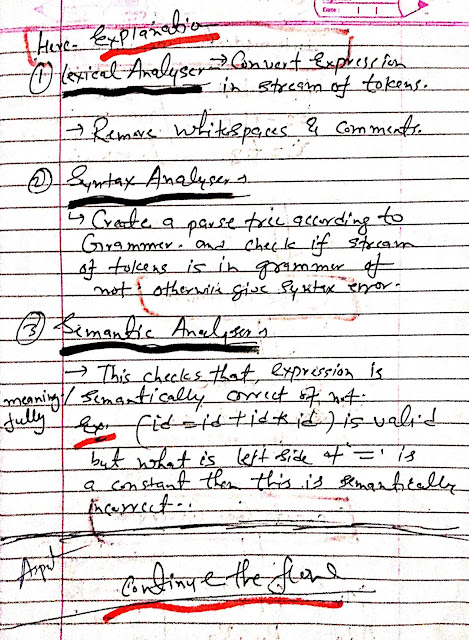 Date:
Here- Explanatio
① Lexical Analyser → Convert Expression
in stream of tokens.
→ Remove whitespaces & comments.
② Syntax Analyser
↳ Create a parse tree according to
Grammer. and check if stream
of tokens is in grammer of
not otherwise give Syntax error.
③ Semantic Analyser
→ This checks that, expression is
meaning/ semantically correct of not.
fully
Ex: (id = id + id * id) is valid
but what is left side of '=' is
a constant then this is semantically
incorrect..
Continue the flow